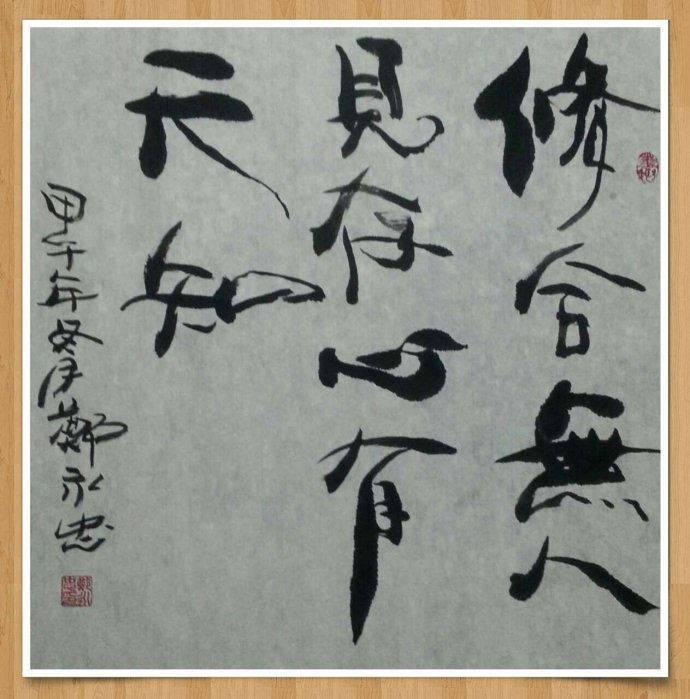 修合無人
見存心有
天知
甲午年冬月鄭永忠